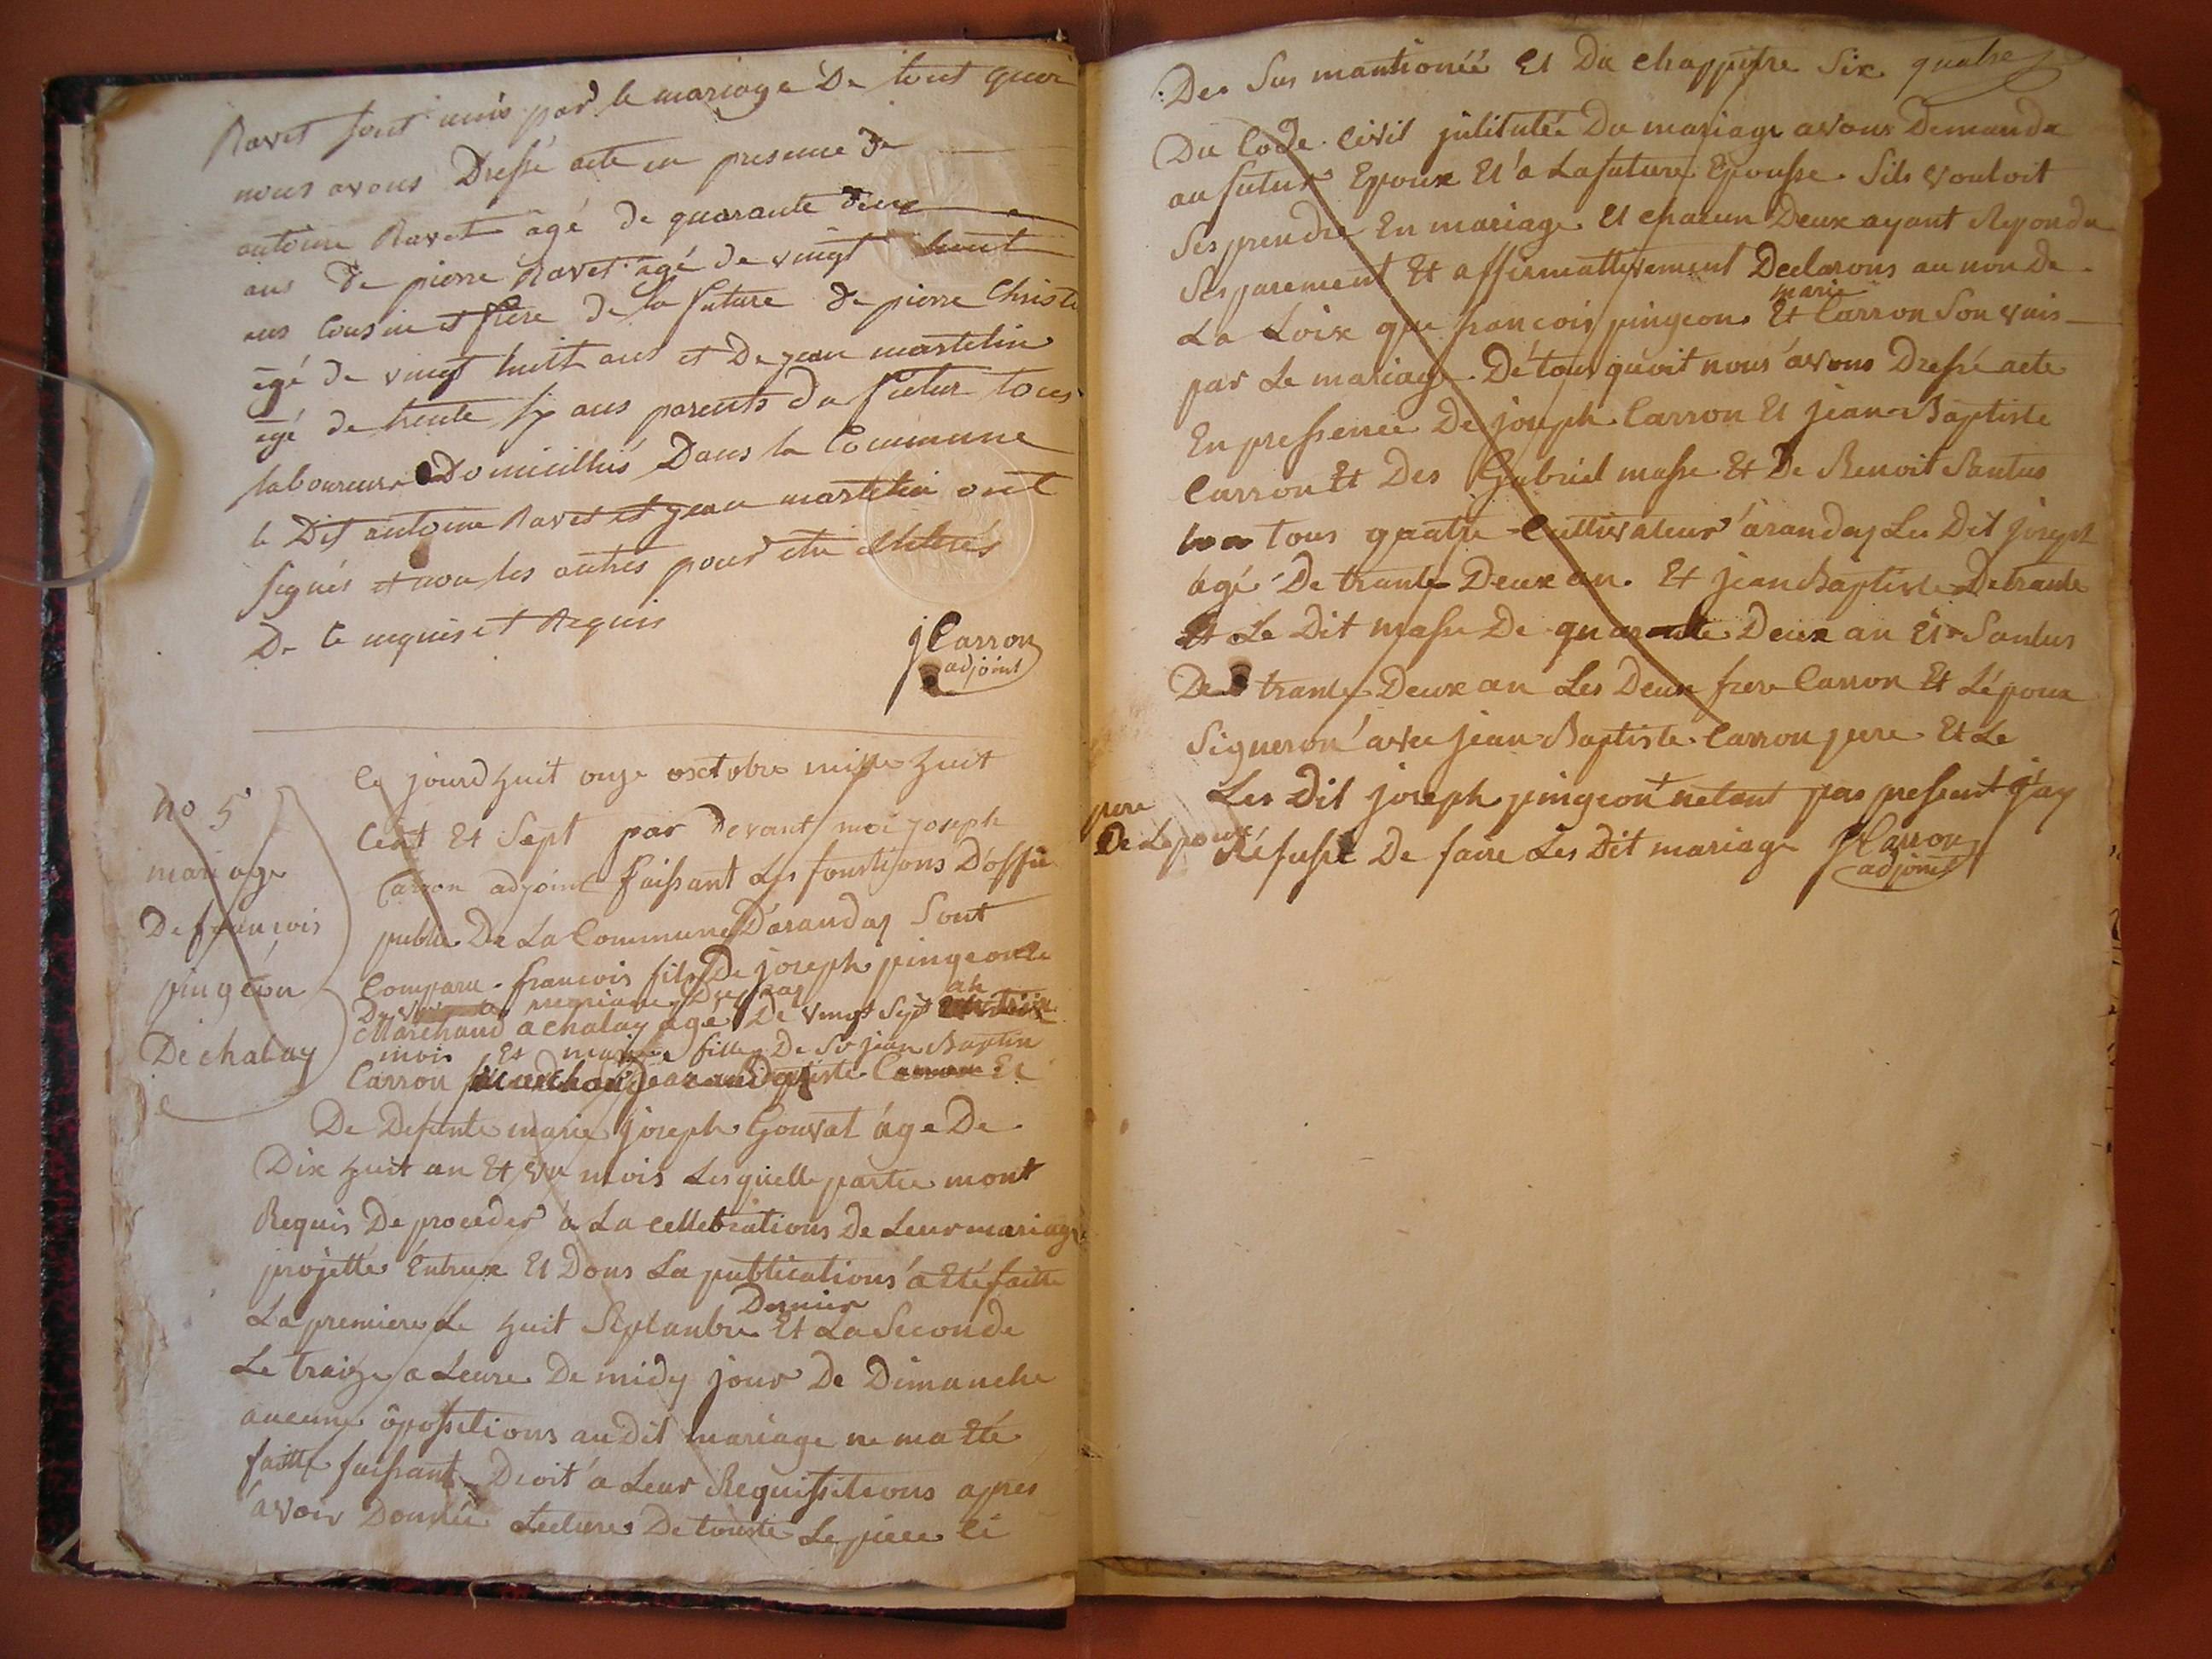 Ravet sont unis par le mariage De tout quoi
nous avons Dressé acte en presence de
antoine Ravet agé de quarante deux
ans de pierre Ravet agé de vingt huit
ans Cousin et frere de la future de pierre Christi
agé de vingt huitt ans et De jean martelin
agé de trente six ans parents du futur tous
laboureurs Domicilliés Dans la Commune
le Dit antoine Ravet et jean martelin ont
signés et non les autres pour etre illiterés
De ce enquis et Requis
jCarron
adjoint
no 5
mariage
De francois
pingeon
De chalay
Ce jourdhuit onze oxctobre mille huit
Cent Et Sept par devant moi joseph
Carron adjoint faissant Les fonctisons D'offie
public De La Commune D'aranday Sont
Comparu francois fils De joseph pingeon Et
De
an
Marchand a chalay agé De vingt Sept
mois Et marie fille De Sr jean Baptiste
Carron Et
De Defunte marie joseph Gouvat age De
Dix huit an Et un mois Lesquelle partie mont
Requis De proceder a La cellebrations De Leur mariage
projetté Entreux Et Dons La publications a Eté faitte
Dernier
La premiere Le huit Septanbre Et La Seconde
Le traize a Leure De midy jour De Dimanche
aucune opossitions au Dit mariage ne ma Eté
faitte faissant Droit a Leur Requissitions apres
avoir Donnée Lecture De toutte Le piece Ci
Des Sus mantionéé Et Du chappitre Six quatre
Du Code Civil jntitulée Du mariage avons Demandé
au futur Epoux Et a La future Epousse Sils vouloit
Ses prendre En mariage Et chacun Deux ayant Repondu
Separement Et affirmattivement Declarons au non De
marie
La Loix que francois pingeon Et Carron Son unis
par Le mariage De tous quoit nous avons Dressé acte
En pressence De joseph Carron Et jean Baptiste
Carron Et Des Gabriel masse Et De Benoit Santus
tous quatre Cultivateur a aranday Les Dit joseph
agé De trante Deux an Et jean Baptiste De trante
Et Le Dit masse De quarante Deux an Et Santus
De trante Deux an Les Deux frere Carron Et Lépoux
Signeron avec jean Baptiste Carron pere Et Le
pere
De Lepoux
Les Dit joseph pingeon netant pas pressent j'ay
Réfussé De faire Les Dit mariage
jCarron
adjoint